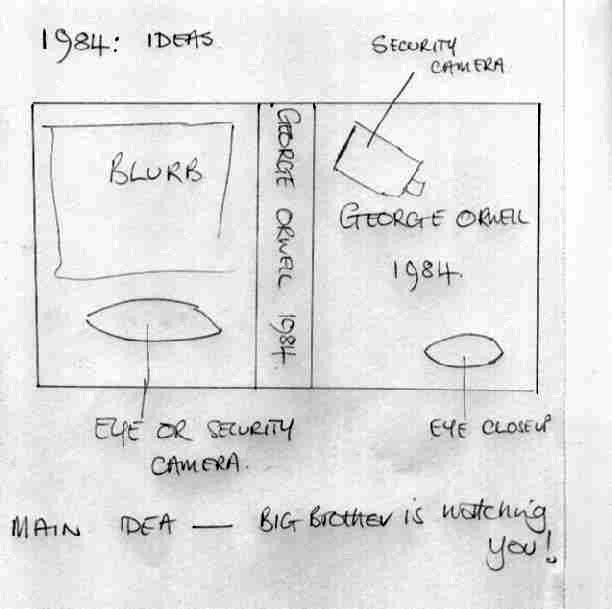 1984: IDEAS
SECURITY
CAMERA
BLURB
GEORGE ORWELL 1984.
GEORGE ORWELL
1984.
EYE OR SECURITY
CAMERA.
EYE CLOSEUP
MAIN IDEA — BIG BROTHER is watching
you!